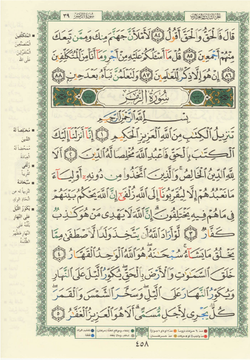 ٣٩
قَالَ فَٱلْحَقُّ وَٱلْحَقَّ أَقُولُ ٨٤ لَأَمْلَأَنَّ جَهَنَّمَ مِنكَ وَمِمَّن تَبِعَكَ
مِنْهُمْ أَجْمَعِينَ ٨٥ قُلْ مَآ أَسْـَٔلُكُمْ عَلَيْهِ مِنْ أَجْرٍ وَمَآ أَنَا۠ مِنَ ٱلْمُتَكَلِّفِينَ
٨٦ إِنْ هُوَ إِلَّا ذِكْرٌ لِّلْعَٰلَمِينَ ٨٧ وَلَتَعْلَمُنَّ نَبَأَهُۥ بَعْدَ حِينٍۭ ٨٨
سُورَةُ الزُّمَرِ
بِسْمِ ٱللَّهِ ٱلرَّحْمَٰنِ ٱلرَّحِيمِ
تَنزِيلُ ٱلْكِتَٰبِ مِنَ ٱللَّهِ ٱلْعَزِيزِ ٱلْحَكِيمِ ١ إِنَّآ أَنزَلْنَآ إِلَيْكَ
ٱلْكِتَٰبَ بِٱلْحَقِّ فَٱعْبُدِ ٱللَّهَ مُخْلِصًا لَّهُ ٱلدِّينَ ٢ أَلَا لِلَّهِ
ٱلدِّينُ ٱلْخَالِصُ وَٱلَّذِينَ ٱتَّخَذُوا۟ مِن دُونِهِۦٓ أَوْلِيَآءَ
مَا نَعْبُدُهُمْ إِلَّا لِيُقَرِّبُونَآ إِلَى ٱللَّهِ زُلْفَىٰٓ إِنَّ ٱللَّهَ يَحْكُمُ بَيْنَهُمْ
فِى مَا هُمْ فِيهِ يَخْتَلِفُونَ إِنَّ ٱللَّهَ لَا يَهْدِى مَنْ هُوَ كَٰذِبٌ
كَفَّارٌ ٣ لَّوْ أَرَادَ ٱللَّهُ أَن يَتَّخِذَ وَلَدًا لَّٱصْطَفَىٰ مِمَّا
يَخْلُقُ مَا يَشَآءُ سُبْحَٰنَهُۥ هُوَ ٱللَّهُ ٱلْوَٰحِدُ ٱلْقَهَّارُ ٤
خَلَقَ ٱلسَّمَٰوَٰتِ وَٱلْأَرْضَ بِٱلْحَقِّ يُكَوِّرُ ٱلَّيْلَ عَلَى ٱلنَّهَارِ
وَيُكَوِّرُ ٱلنَّهَارَ عَلَى ٱلَّيْلِ وَسَخَّرَ ٱلشَّمْسَ وَٱلْقَمَرَ
كُلٌّ يَجْرِى لِأَجَلٍ مُّسَمًّى أَلَا هُوَ ٱلْعَزِيزُ ٱلْغَفَّٰرُ ٥
٤٥٨